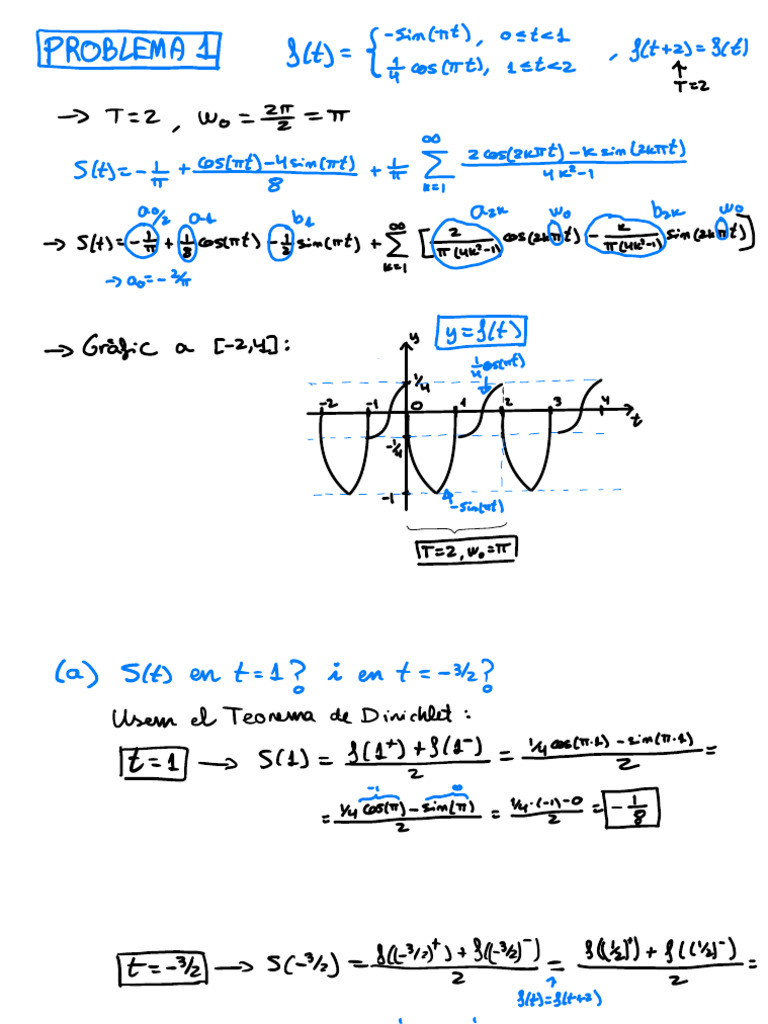 PROBLEMA 1
f(t) = { -sin(πt), 0≤t<1
1/4 cos(πt), 1≤t<2 , f(t+2) = f(t)
↑ T=2
→ T=2, w₀ = 2π/2 = π
S(t) = -1/π + (cos(πt)-4sin(πt))/8 + 1/π ∞∑k=1 (2cos(2kπt)-k sin(2kπt))/(4k²-1)
a₀/2 a₁ b₁ a₂ₖ w₀ b₂ₖ w₀
→ S(t) = -1/π + 1/8 cos(πt) -1/2 sin(πt) + ∞∑k=1 [ 2/(π(4k²-1)) cos(2kπt) - k/(π(4k²-1)) sin(2kπt) ]
→ a₀ = -2/π
→ Gràfic a [-2,4]:
y=f(t)
y
1/4 cos(πt)
1/4
-2 -1 0 1 2 3 4
t
-1/4
-1
-sin(πt)
T=2, w₀=π
(a) S(t) en t=1? i en t=-3/2?
Usem el Teorema de Dirichlet:
t=1 → S(1) = (f(1⁺)+f(1⁻))/2 = (1/4 cos(π·1) - sin(π·1))/2 =
-1 0
= (1/4 cos(π) - sin(π))/2 = (1/4·(-1)-0)/2 = -1/8
t=-3/2 → S(-3/2) = (f((-3/2)⁺)+f((-3/2)⁻))/2 = (f((1/2)⁺)+f((1/2)⁻))/2 =
↑ f(t)=f(t+2)